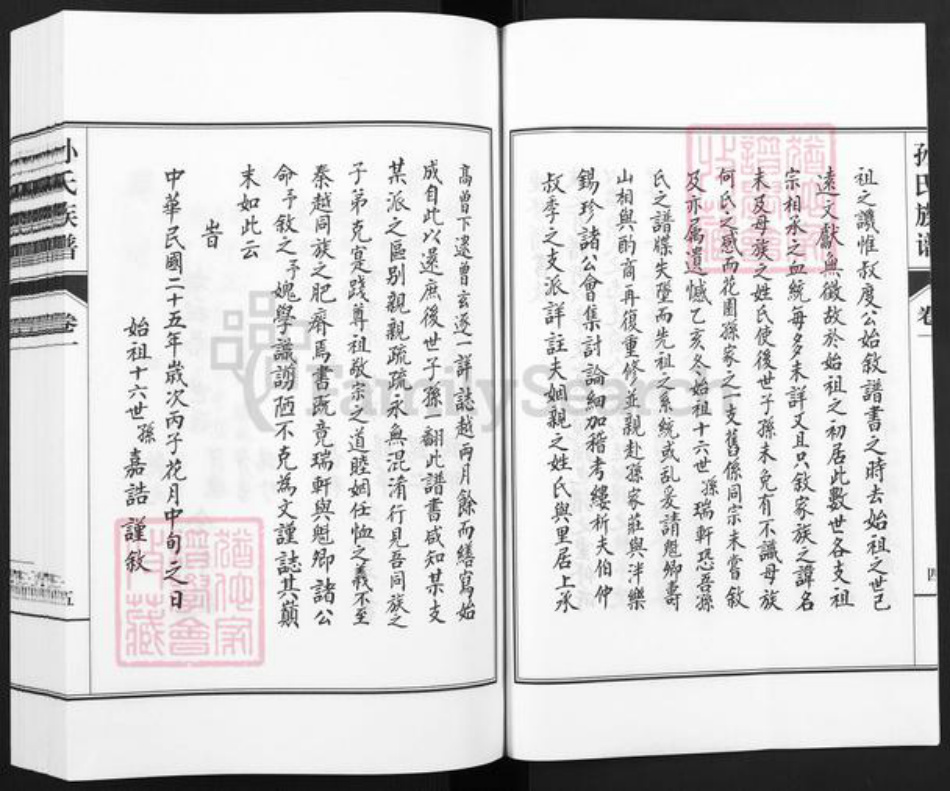 孙氏族谱
卷
四
祖之譏惟叔度公始敘譜書之時去始祖之世已
遠文獻無徵故於始祖之初居此數世各支祖
宗相承之血統每多未詳又且只敘家族之諱名
未及母族之姓氏使後世子孫未免有不識母族
何氏之感而花園孫家之一支舊係同宗未嘗敘
及亦屬遺憾乙亥冬始祖十六世孫瑞軒恐吾孫
氏之譜牒失墜而先祖之系統或乱爰請魁卿壽
山相與酌商再復重修並親赴孫家莊與泮樂
錫珍諸公會集討論細加稽考縷析夫伯仲
叔季之支派詳註夫姻親之姓氏與里居上承
高曾下逮曾玄逐一詳誌越兩月餘而繕寫始
成自此以還庶後世子孫翻此譜書咸知某支
某派之區别親親疏疏永無混淆行見吾同族之
子弟克寔踐尊祖敬宗之道睦姻任恤之義不至
秦越同族之肥瘠焉書既竟瑞軒與魁卿諸公
命予敘之予媿學識謭陋不克為文謹誌其巔
末如此云
旹
中華民國二十五年歲次丙子花月中旬之日
始祖十六世孫嘉誥謹敘
孙氏族谱
卷一
五
FamilySearch
猶他家
譜學會
收藏
猶他家
譜學會
收藏